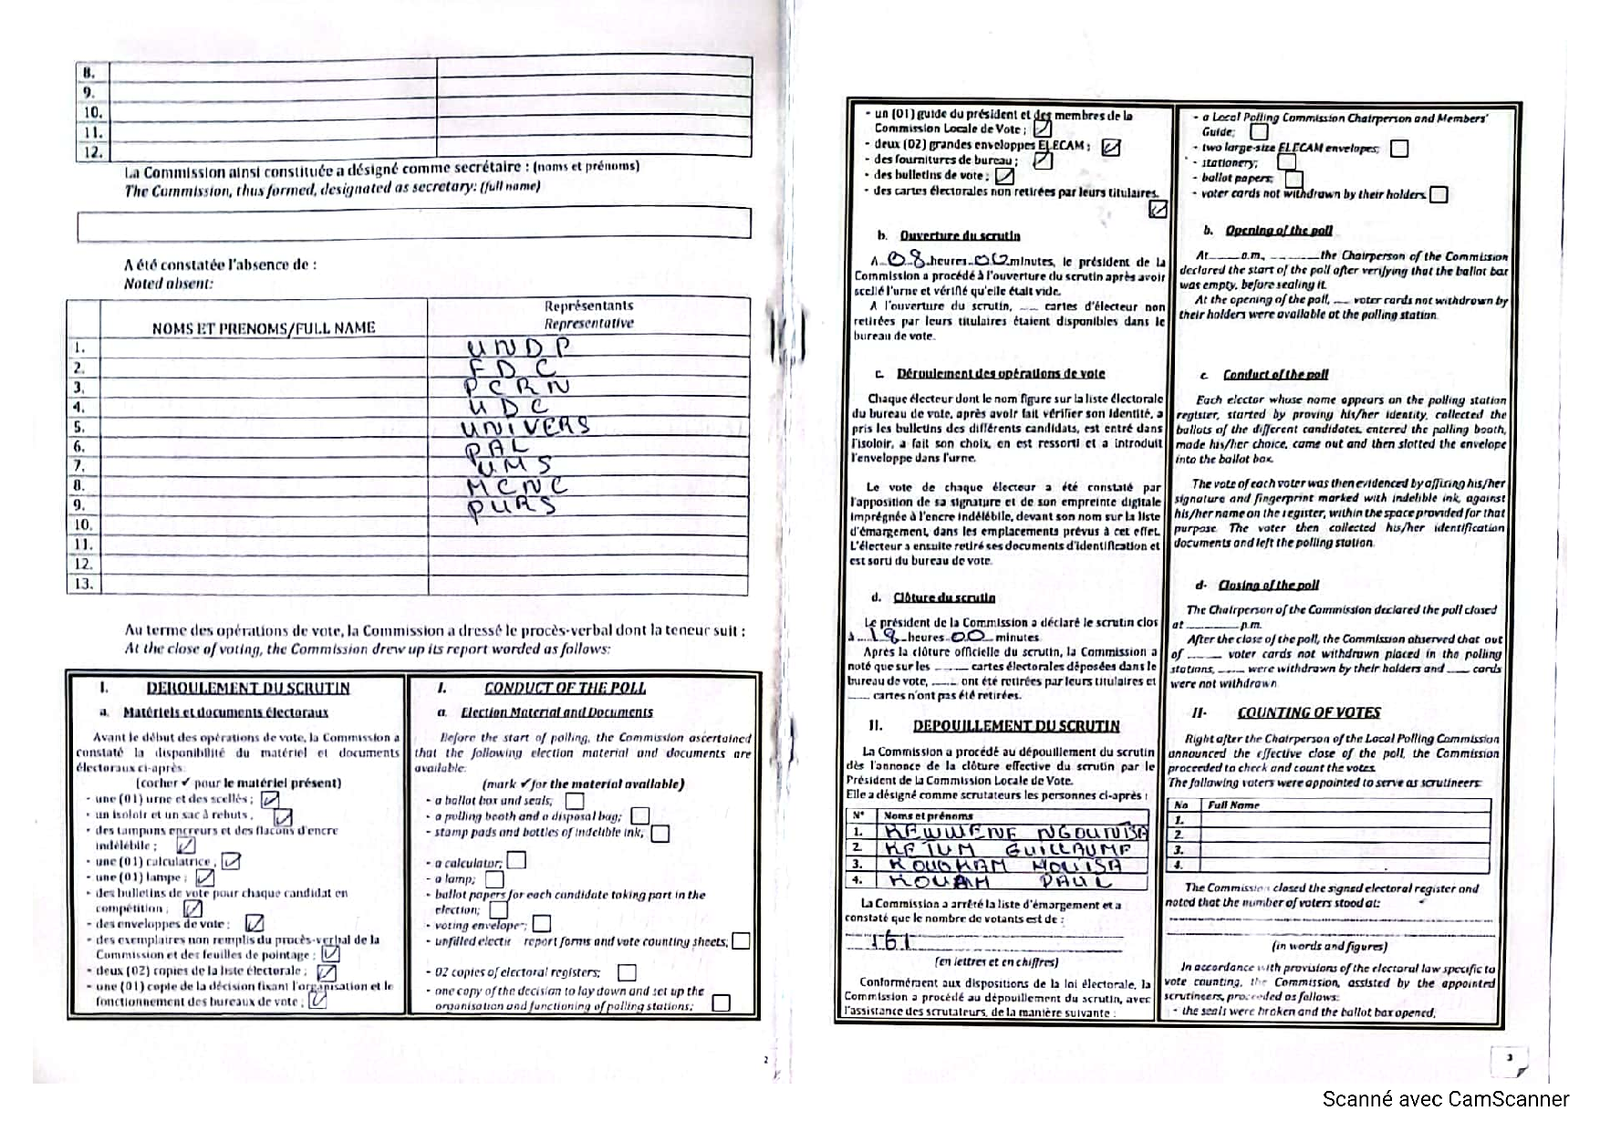 8.
9.
10.
11.
12.
La Commission ainsi constituée a désigné comme secrétaire : (noms et prénoms)
The Commission, thus formed, designated as secretary: (full name)
A été constatée l'absence de :
Noted absent:
NOMS ET PRENOMS/FULL NAME
Représentants
Representative
1. UNDP
2. FDC
3. PCRN
4. UDC
5. UNIVERS
6. PAL
7. UMS
8. MCNC
9. PURS
10.
11.
12.
13.
Au terme des opérations de vote, la Commission a dressé le procès-verbal dont la teneur suit :
At the close of voting, the Commission drew up its report worded as follows:
I. DEROULEMENT DU SCRUTIN
a. Matériels et documents électoraux
Avant le début des opérations de vote, la Commission a
constaté la disponibilité du matériel et documents
électoraux ci-après:
(cocher ✓ pour le matériel présent)
- une (01) urne et des scellés ;
- un isoloir et un sac à rebuts ,
- des tampons encreurs et des flacons d'encre
indélébile ;
- une (01) calculatrice ,
- une (01) lampe ;
- des bulletins de vote pour chaque candidat en
compétition ,
- des enveloppes de vote ;
- des exemplaires non remplis du procès-verbal de la
Commission et des feuilles de pointage ;
- deux (02) copies de la liste électorale ;
- une (01) copie de la décision fixant l'organisation et le
fonctionnement des bureaux de vote ;
I. CONDUCT OF THE POLL
a. Election Material and Documents
Before the start of polling, the Commission ascertained
that the following election material and documents are
available:
(mark ✓ for the material available)
- a ballot box and seals;
- a polling booth and a disposal bag;
- stamp pads and bottles of indelible ink;
- a calculator;
- a lamp;
- ballot papers for each candidate taking part in the
election;
- voting envelope;
- unfilled report forms and vote counting sheets;
- 02 copies of electoral registers;
- one copy of the decision to lay down and set up the
organisation and functioning of polling stations;
2
- un (01) guide du président et des membres de la
Commission Locale de Vote ;
- deux (02) grandes enveloppes ELECAM ;
- des fournitures de bureau ;
- des bulletins de vote ;
- des cartes électorales non retirées par leurs titulaires.
b. Ouverture du scrutin
A 08 heures 00 minutes, le président de la
Commission a procédé à l'ouverture du scrutin après avoir
scellé l'urne et vérifié qu'elle était vide.
A l'ouverture du scrutin, ___ cartes d'électeur non
retirées par leurs titulaires étaient disponibles dans le
bureau de vote.
c. Déroulement des opérations de vote
Chaque électeur dont le nom figure sur la liste électorale
du bureau de vote, après avoir fait vérifier son identité, a
pris les bulletins des différents candidats, est entré dans
l'isoloir, a fait son choix, en est ressorti et a introduit
l'enveloppe dans l'urne.
Le vote de chaque électeur a été constaté par
l'apposition de sa signature et de son empreinte digitale
imprégnée à l'encre indélébile, devant son nom sur la liste
d'émargement, dans les emplacements prévus à cet effet.
L'électeur a ensuite retiré ses documents d'identification et
est sorti du bureau de vote.
d. Clôture du scrutin
Le président de la Commission a déclaré le scrutin clos
à 18 heures 00 minutes
Après la clôture officielle du scrutin, la Commission a
noté que sur les ____ cartes électorales déposées dans le
bureau de vote, ____ ont été retirées par leurs titulaires et
____ cartes n'ont pas été retirées.
II. DEPOUILLEMENT DU SCRUTIN
La Commission a procédé au dépouillement du scrutin
dès l'annonce de la clôture effective du scrutin par le
Président de la Commission Locale de Vote.
Elle a désigné comme scrutateurs les personnes ci-après :
N° Noms et prénoms
1.
2. GUILLAUME
3. KOUGKAM
4. KOUAM PAUL
La Commission a arrêté la liste d'émargement et a
constaté que le nombre de votants est de :
161
(en lettres et en chiffres)
Conformément aux dispositions de la loi électorale, la
Commission a procédé au dépouillement du scrutin, avec
l'assistance des scrutateurs, de la manière suivante :
- a Local Polling Commission Chairperson and Members'
Guide;
- two large-size ELECAM envelopes;
- stationery;
- ballot papers;
- voter cards not withdrawn by their holders
b. Opening of the poll
At ____ a.m, ____ the Chairperson of the Commission
declared the start of the poll after verifying that the ballot box
was empty, before sealing it.
At the opening of the poll, ___ voter cards not withdrawn by
their holders were available at the polling station.
c. Conduct of the poll
Each elector whose name appears on the polling station
register, started by proving his/her identity, collected the
ballots of the different candidates, entered the polling booth,
made his/her choice, came out and then slotted the envelope
into the ballot box.
The vote of each voter was then evidenced by affixing his/her
signature and fingerprint marked with indelible ink, against
his/her name on the register, within the space provided for that
purpose. The voter then collected his/her identification
documents and left the polling station.
d- Closing of the poll
The Chairperson of the Commission declared the poll closed
at ____ p.m.
After the close of the poll, the Commission observed that out
of ____ voter cards not withdrawn placed in the polling
stations, ____ were withdrawn by their holders and ____ cards
were not withdrawn
II- COUNTING OF VOTES
Right after the Chairperson of the Local Polling Commission
announced the effective close of the poll, the Commission
proceeded to check and count the votes.
The following voters were appointed to serve as scrutineers:
No Full Name
1.
2.
3.
4.
The Commission closed the signed electoral register and
noted that the number of voters stood at:
(in words and figures)
In accordance with provisions of the electoral law specific to
vote counting, the Commission, assisted by the appointed
scrutineers, proceeded as follows:
- the seals were broken and the ballot box opened,
3
Scanné avec CamScanner